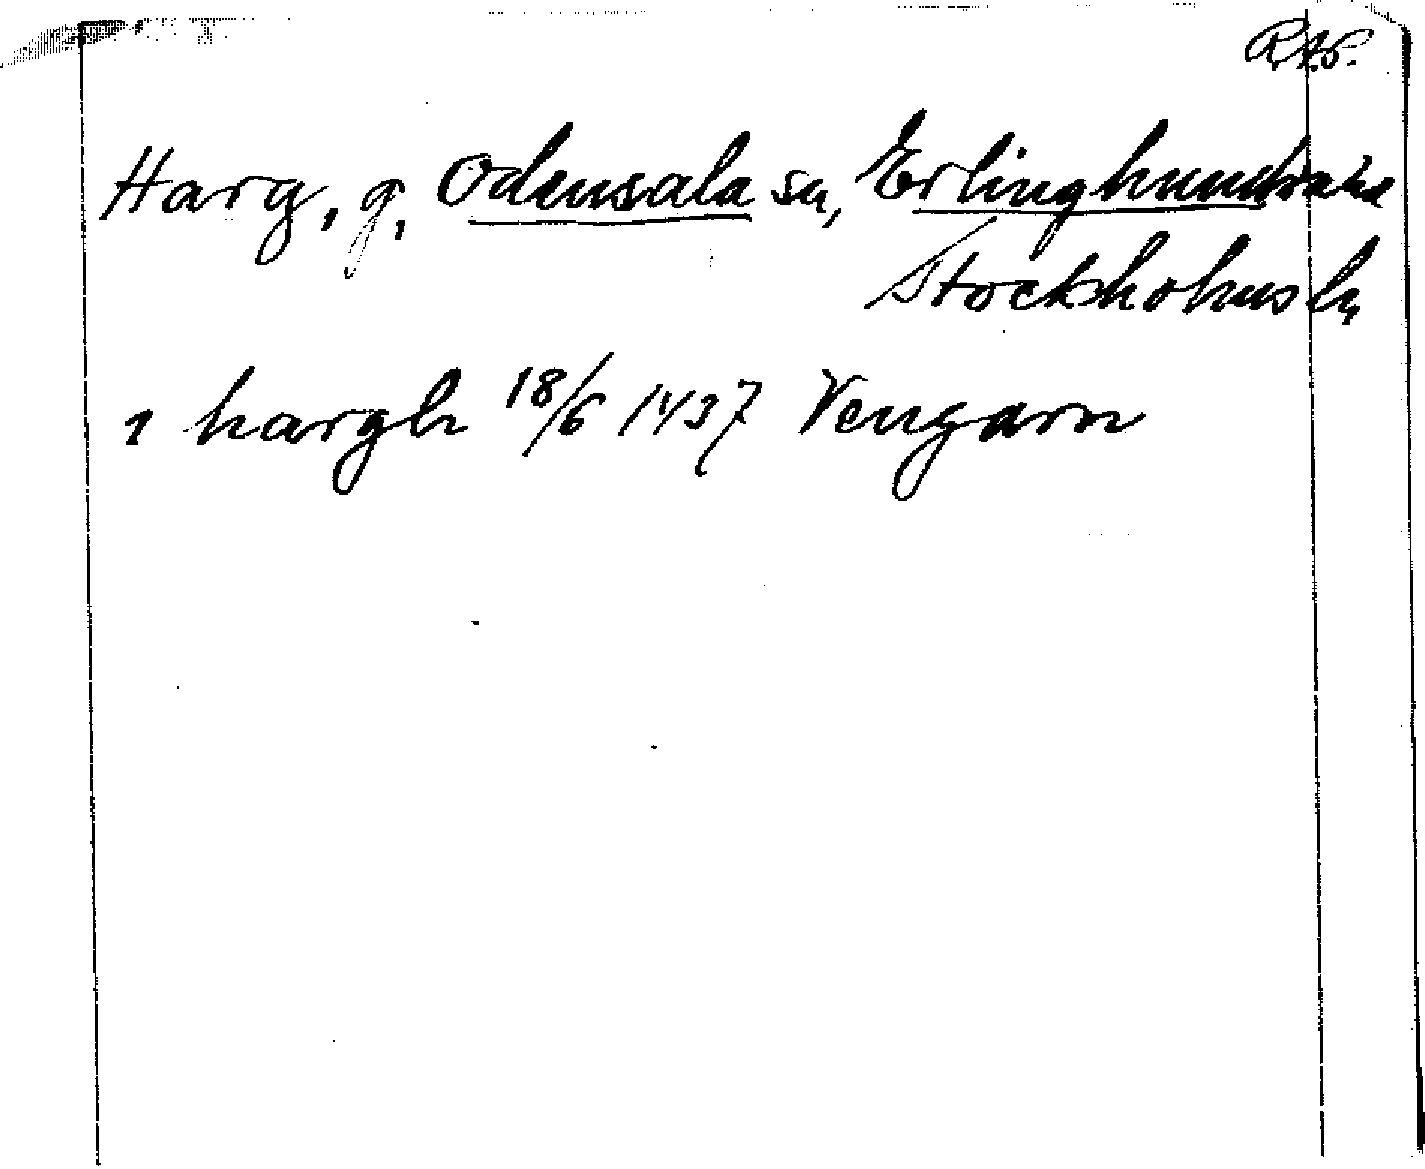 R.A.P.
Harg, g, Odensala sn, Erlinghundra hd
Stockholms ln
1 hargh 18/6 1437 Vengarn